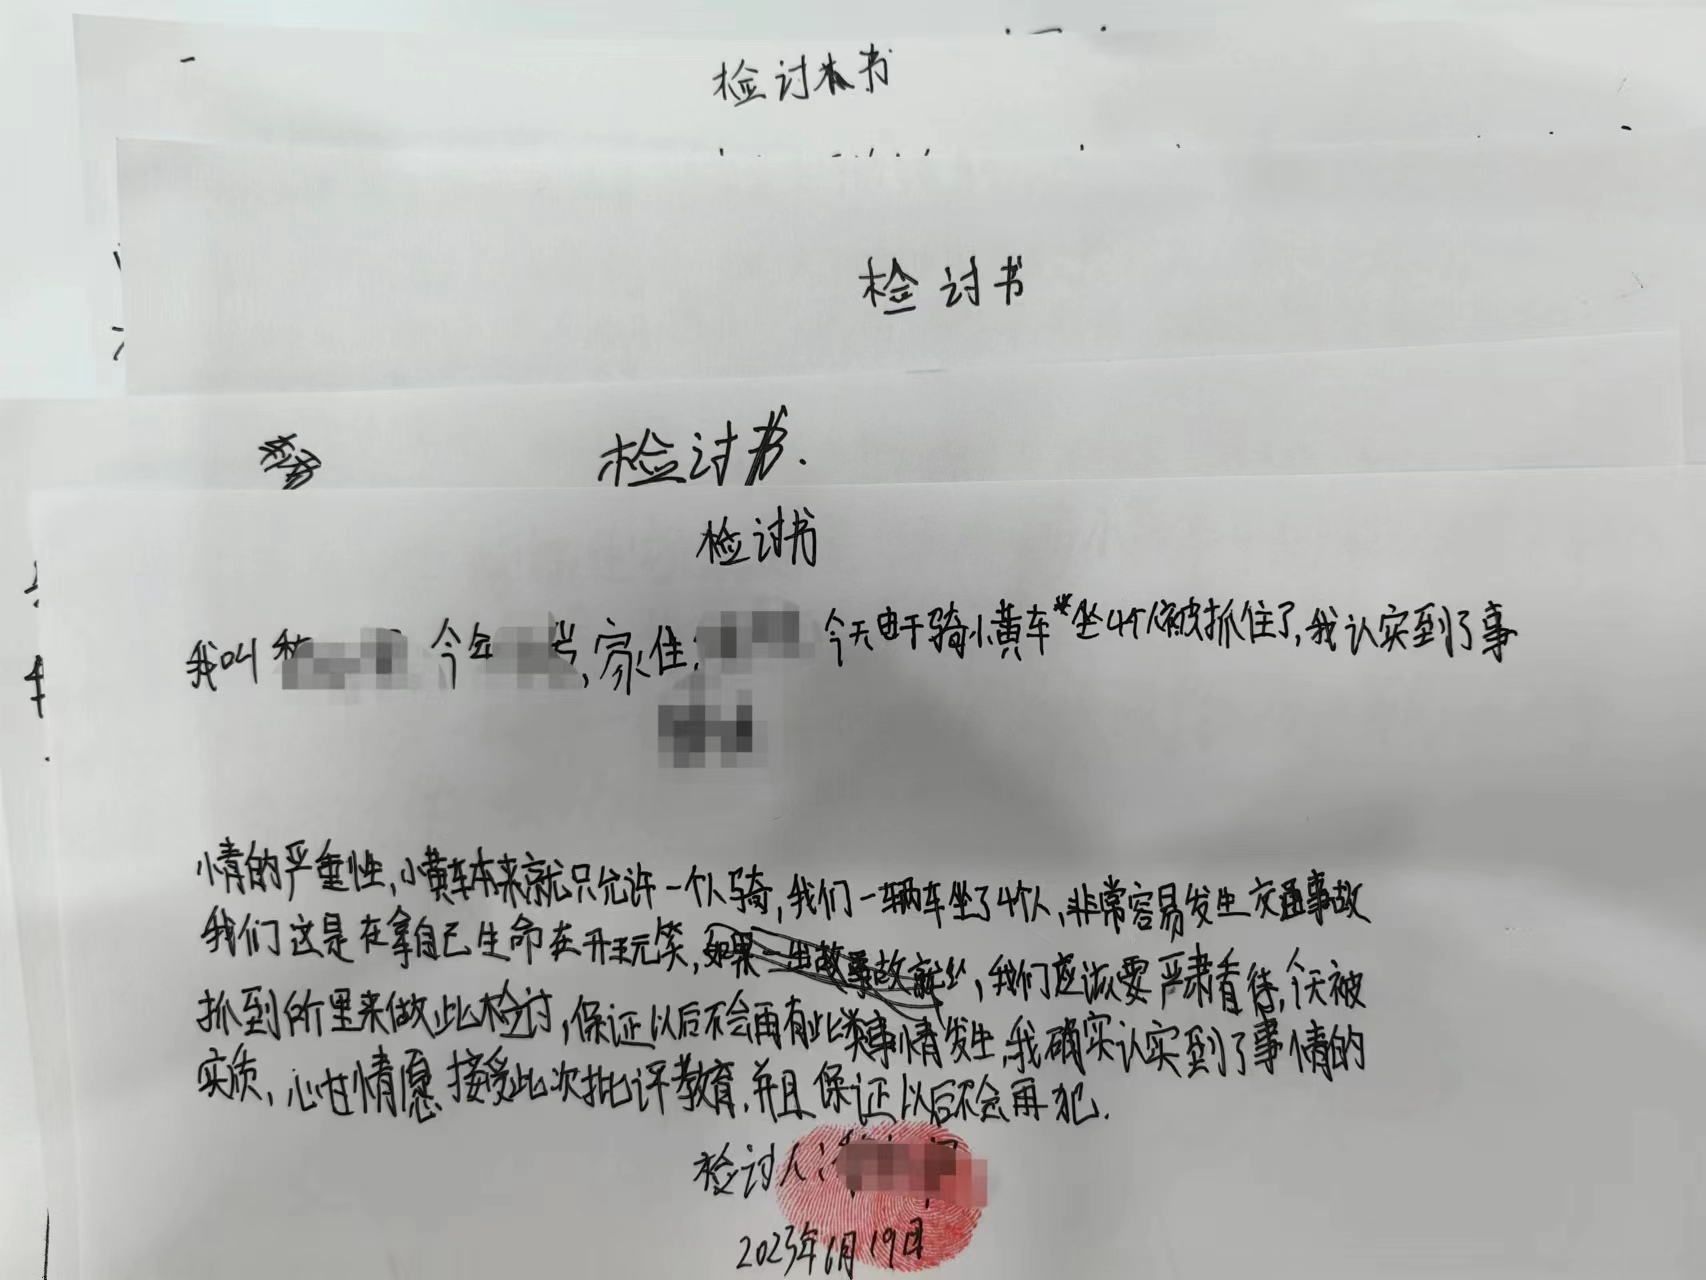 检讨书
检讨书
检讨书.
检讨书
我叫 今年 岁,家住: 今天由于骑小黄车坐4个人被抓住了,我认实到了事
情的严重性,小黄车本来就只允许一个人骑,我们一辆车坐了4个人,非常容易发生交通事故
我们这是在拿自己生命在开玩笑,如果一出故事故就,我们应该要严肃看待,今天被
抓到所里来做此检讨,保证以后不会再有此类事情发生,我确实认实到了事情的
实质,心甘情愿接受此次批评教育,并且保证以后不会再犯.
检讨人:
2023年1月19日